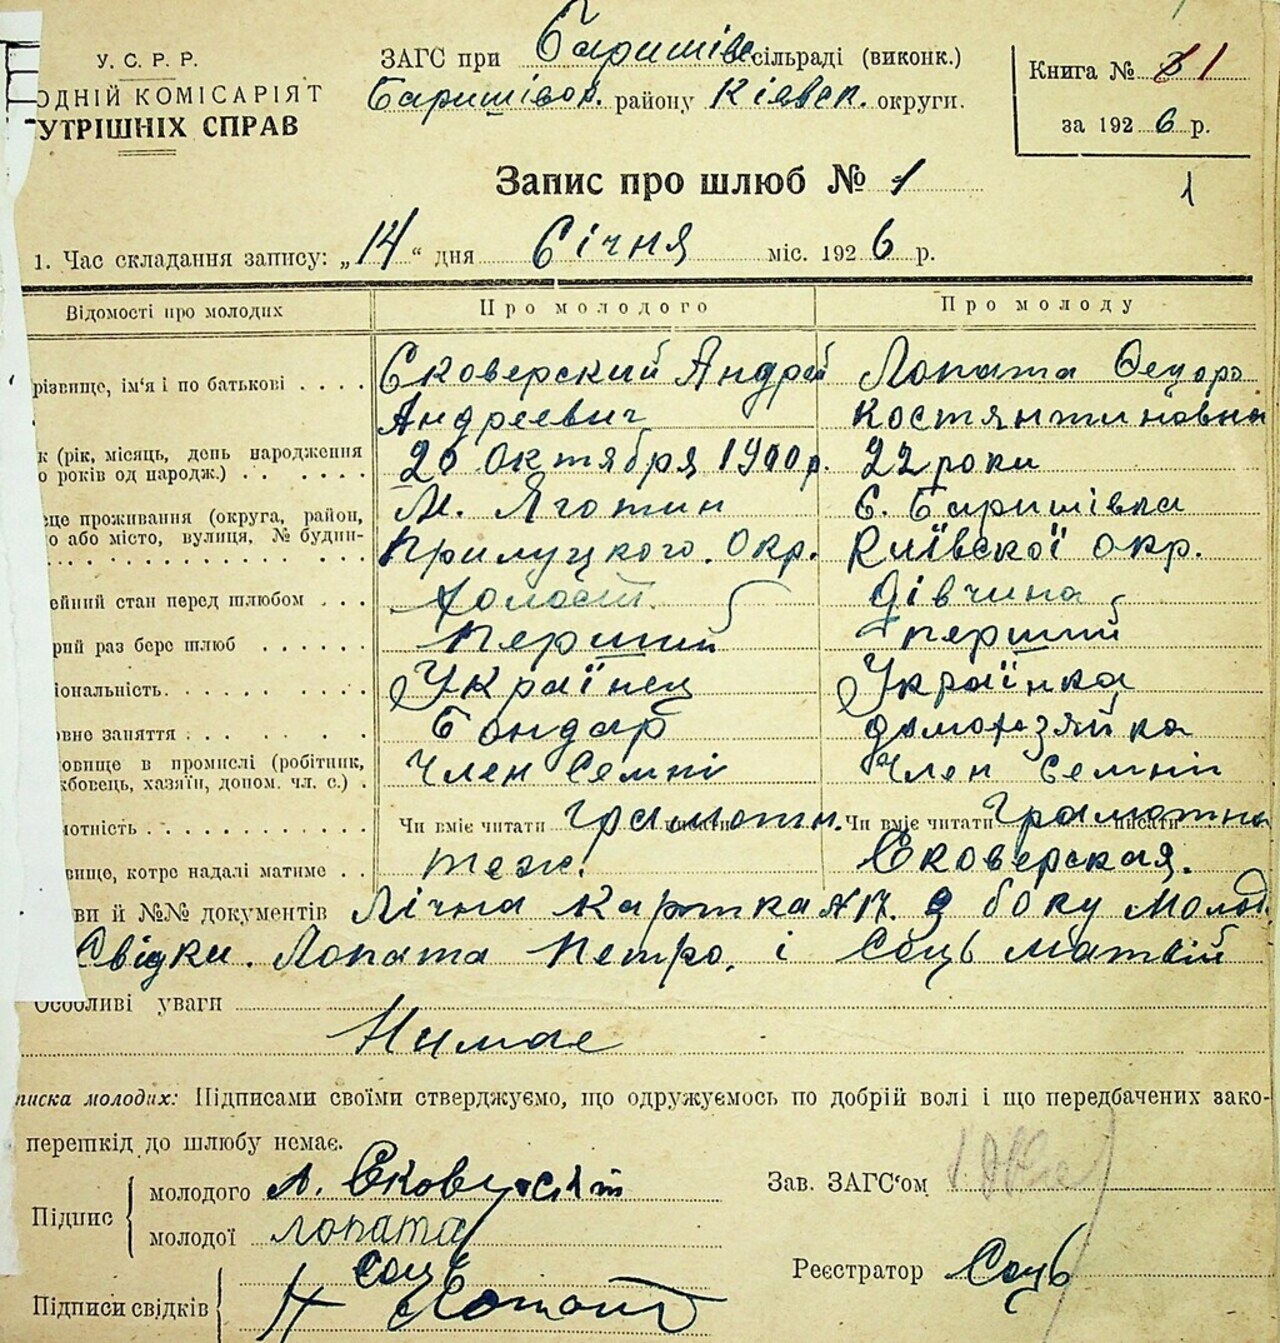 У. С. Р. Р.
ОДНІЙ КОМІСАРІЯТ
УТРІШНІХ СПРАВ
ЗАГС при Баришівс сільраді (виконк.)
Баришівск. району Кіевск. округи.
Книга № 1
за 1926 р.
Запис про шлюб № 1
1
1. Час складання запису: „14“ дня Січня міс. 1926 р.
Відомості про молодих Про молодого Про молоду
різвище, ім'я і по батькові . . . . Сковерский Андрій Лопата Федора
Андреевич Костянтиновна
к (рік, місяць, день народження
о років од народж.) . . . . . . 20 Октября 1900 р. 22 роки
це проживання (округа, район, М. Яготин С. Баришівка
о або місто, вулиця, № будин- Прилуцкого Окр. Київскої окр.
ейний стан перед шлюбом . . . Холост. дівчина
рий раз бере шлюб . . . . . . Перший перший
іональність. . . . . . . . . . Українец Українка
овне заняття . . . . . . . . . Бондар домохазяйка
овище в промислі (робітник, Член Семнї Член Семнї
жбовець, хазяїн, допом. чл. с.) .
мотність . . . . . . . . . . . Чи вміє читати грамотн. писати Чи вміє читати Грамотна писати
вище, котре надалі матиме . . теж. Сковерская.
ви й №№ документів Лічна картка №17. з боку Молод.
Свідки. Лопата Петро, і Соць Матвій
Особливі уваги
Нимае
писка молодих: Підписами своїми стверджуємо, що одружуємось по добрій волі і що передбачених зако-
перешкід до шлюбу немає.
Підпис молодого А. Сковерскій
молодої лопата
Зав. ЗАГС'ом
Реєстратор Соць
Підписи свідків Соць
Лопата